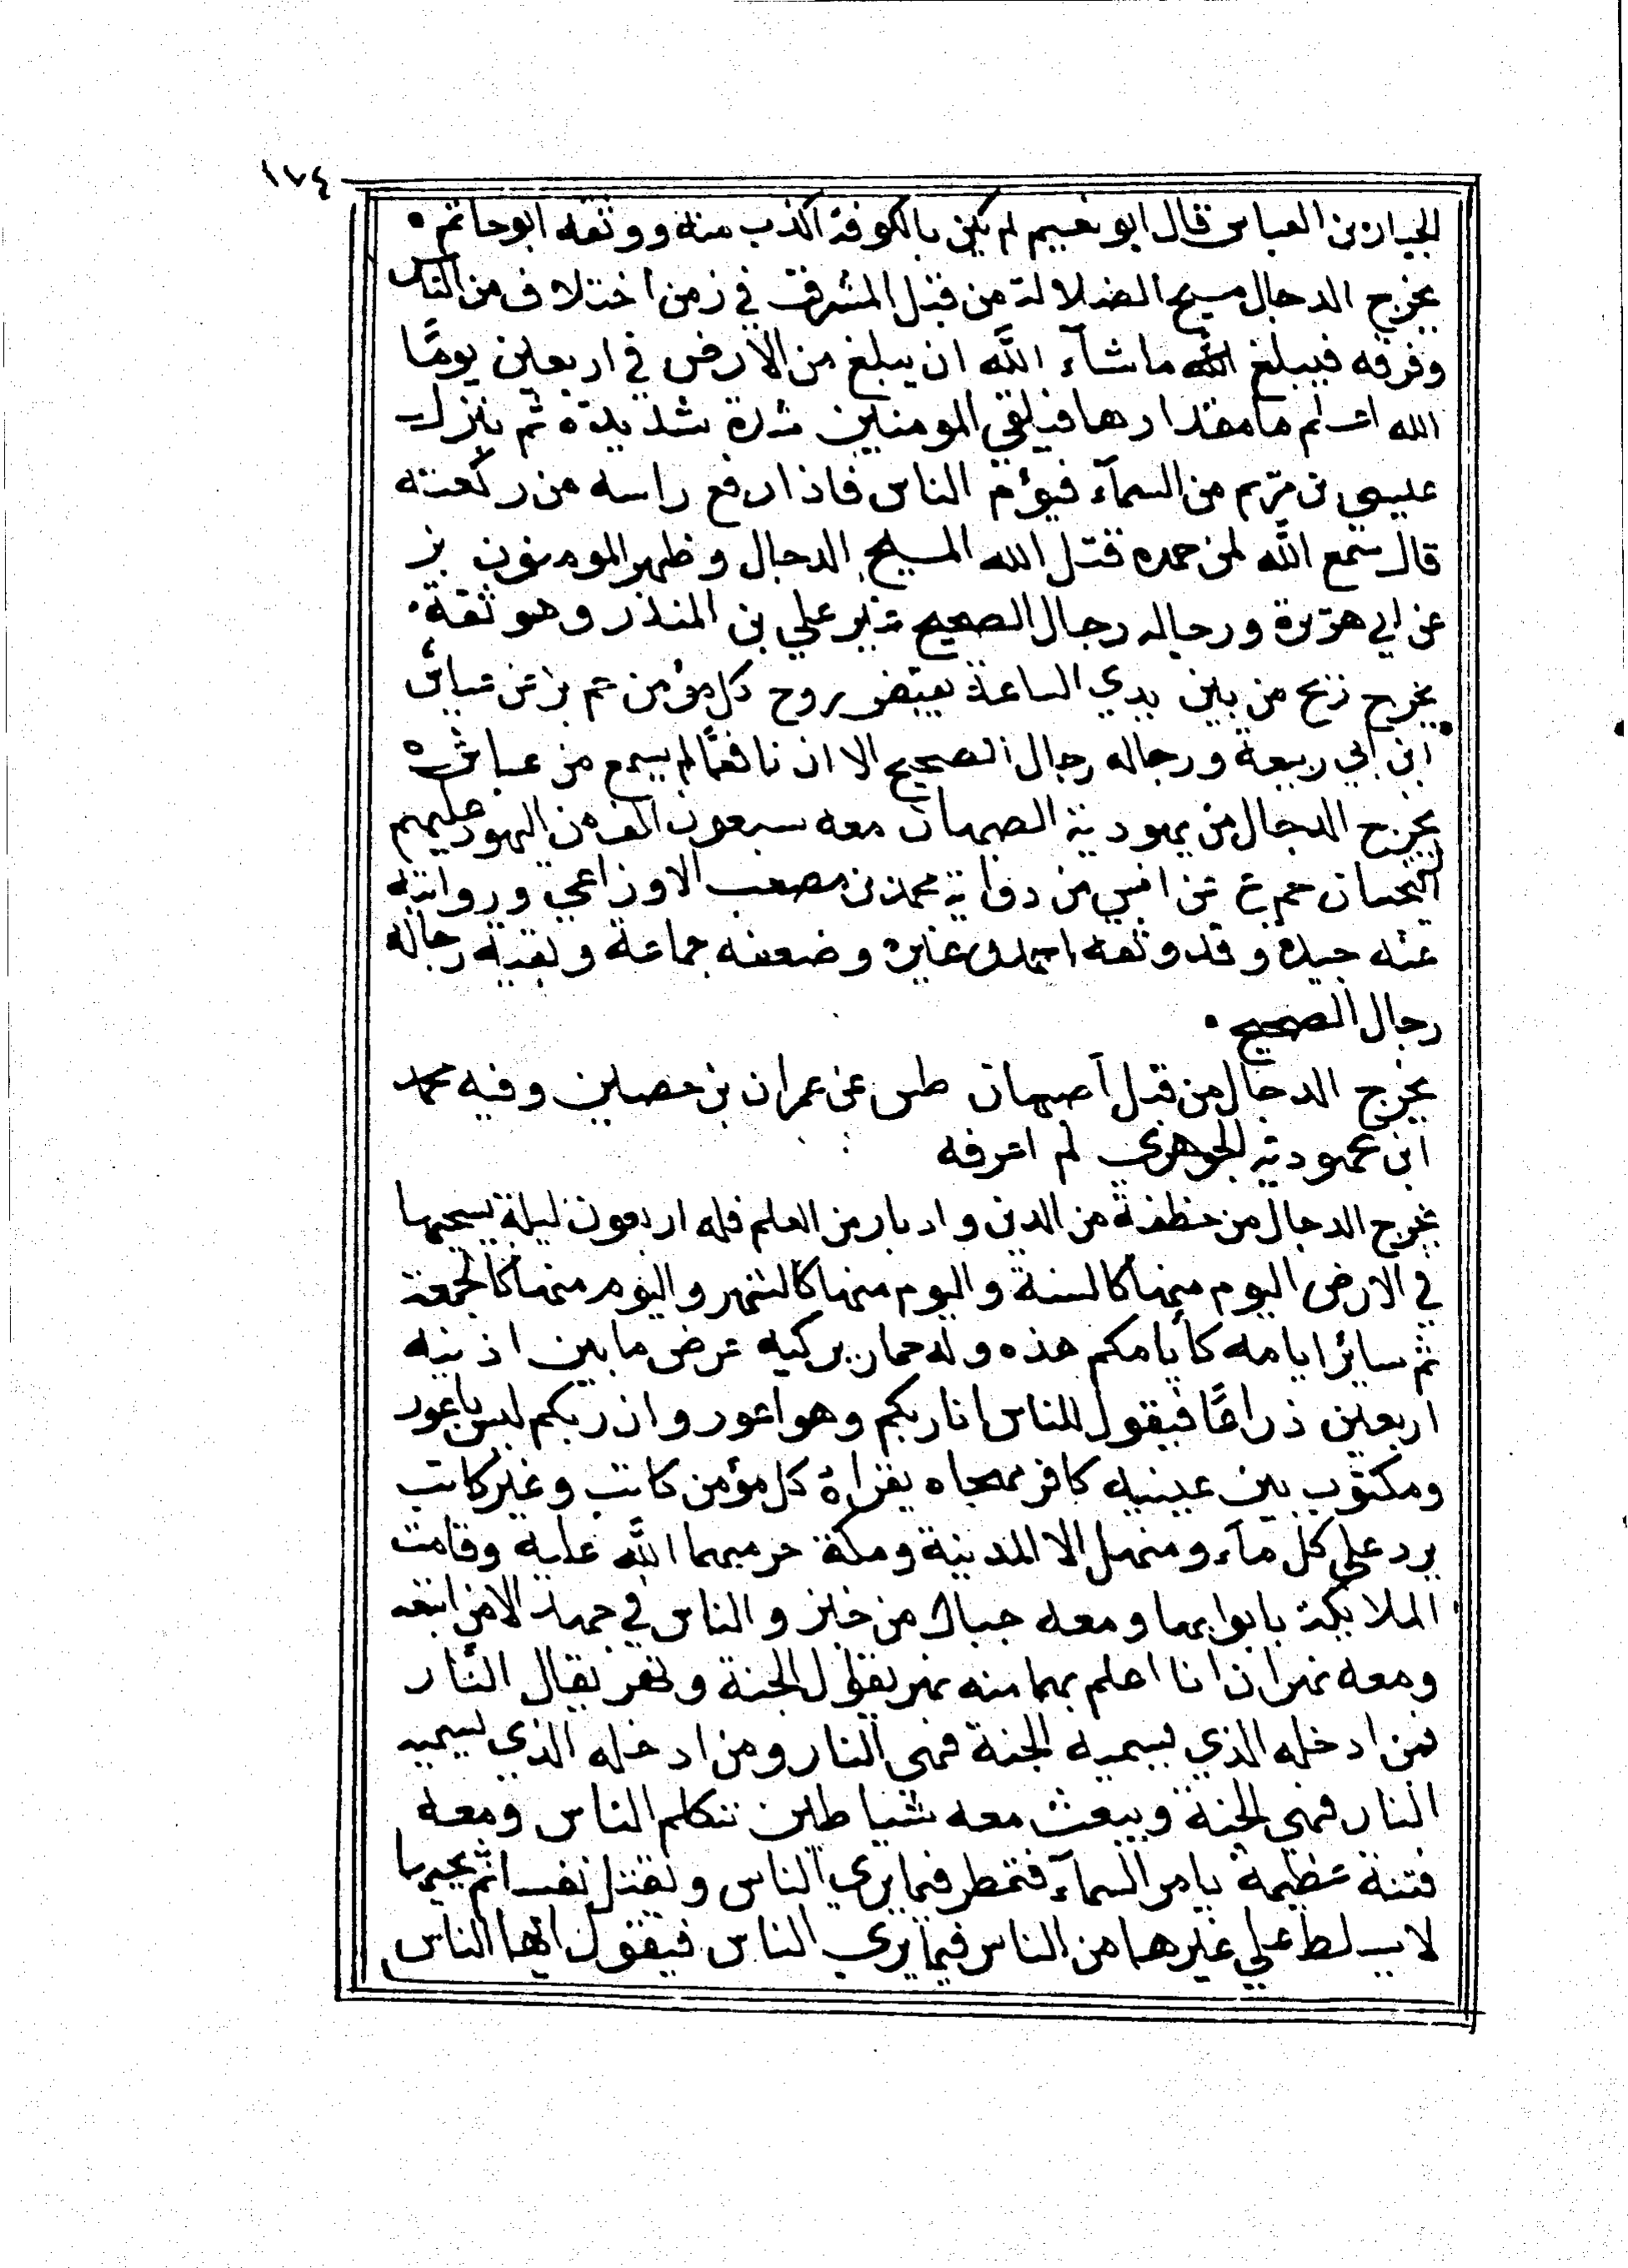 ١٧٤
الجبار بن العباس قال ابو نعيم لم يكن بالكوفة اكذب منه ووثقه ابو حاتم .
يخرج الدجال مسيح الضلالة من قبل المشرق في زمن اختلاف من الناس
وفرقة فيبلغ الله ماشآء الله ان يبلغ من الارض في اربعين يومًا
الله اعلم ما مقدارها فيلقي المومنين شدة شديدة ثم ينزل
عيسى بن مريم من السمآء فيؤم الناس فاذا رفع راسه من ركعته
قال سمع الله لمن حمده قتل الله المسيح الدجال وظهر المومنون بز
عن ابي هريرة ورجاله رجال الصحيح غير علي بن المنذر وهو ثقة .
يخرج ريح من بين يدي الساعة يقبض روح كل مؤمن حم بز عن عياش
ابن ابي ربيعة ورجاله رجال الصحيح الا ان نافعًا لم يسمع من عياش ه
يخرج الدجال من يهودية اصبهان معه سبعون الف من اليهود عليهم
التيجان حم ع عن انس من رواية محمد بن مصعب الاوزاعي وروايته
عنه جيدة وقد وثقه احمد وغيره وضعفه جماعة وبقية رجاله
رجال الصحيح .
يخرج الدجال من قبل اصبهان طس عن عمران بن حصين وفيه محمد
ابن محمودية الجوهري لم اعرفه
يخرج الدجال من خفقة من الدين وادبار من العلم فله اربعون ليلة يسيحها
في الارض اليوم منها كالسنة واليوم منها كالشهر واليوم منها كالجمعة
ثم سائر ايامه كأيامكم هذه وله حمار يركبه عرض ما بين اذنيه
اربعين ذراعًا فيقول للناس انا ربكم وهو اعور وان ربكم ليس باعور
ومكتوب بين عينيه كافر مهجاه يقراه كل مؤمن كاتب وغير كاتب
يرد على كل مآء ومنهل الا المدينة ومكة حرمهما الله عليه وقامت
الملايكة بابوابها ومعه جبال من خبز والناس في جهد الا من اتبعه
ومعه نهران انا اعلم بهما منه نهر يقول الجنة ونهر يقال النار
فمن ادخله الذي يسميه الجنة فهي النار ومن ادخله الذي يسميه
النار فهي الجنة ويبعث معه شياطين تتكلم الناس ومعه
فتنة عظيمة يامر السمآء فتمطر فيما يرى الناس ويقتل نفسا ثم يحييها
لا يسلط على غيرها من الناس فيما يرى الناس فيقول ايها الناس